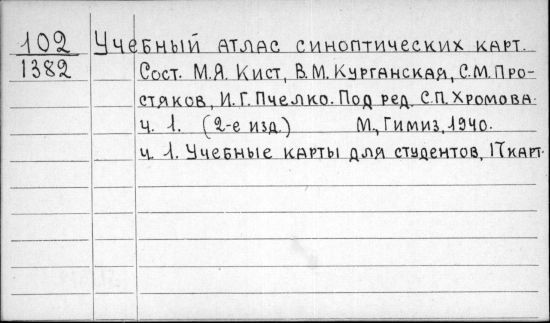 102 Учебный атлас синоптических карт.
1382 Сост. М.Я. Кист, В.М. Курганская, С.М. Про-
стяков, И.Г. Пчелко. Под ред. С.П. Хромова.
ч. 1. (2-е изд.) М., Гимиз, 1940.
ч. 1. Учебные карты для студентов, 17 карт.